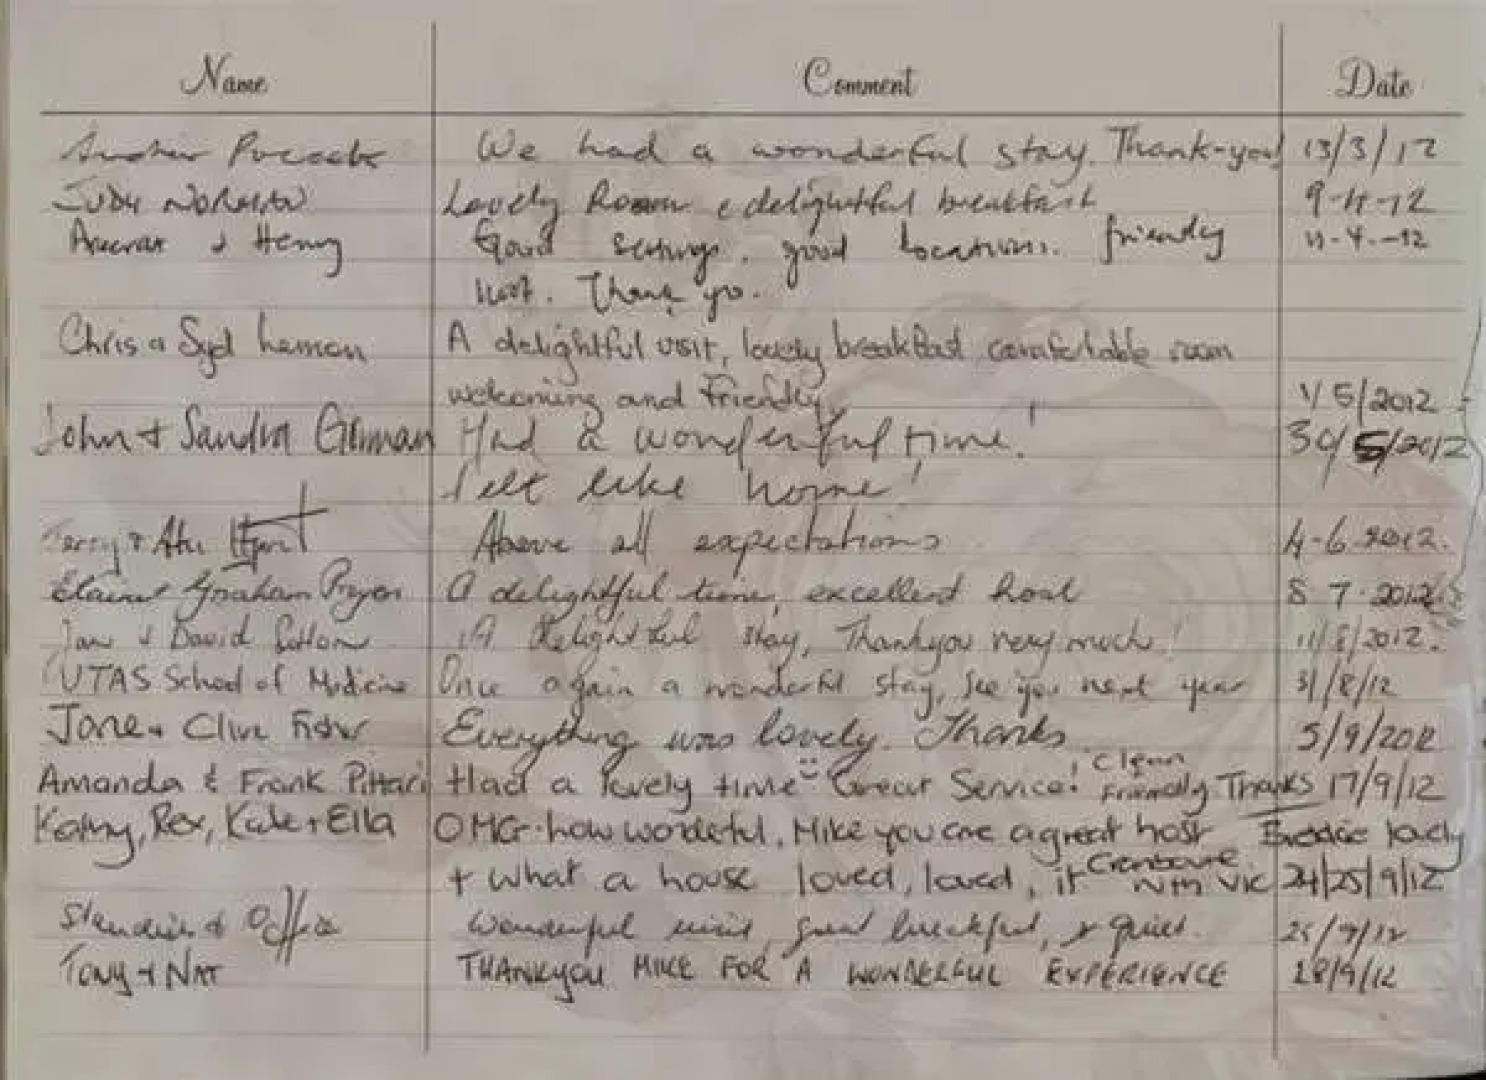 Name Comment Date
We had a wonderful stay. Thank-you! 13/3/12
JUDY NORMAN Lovely Room & delightful breakfast 9-4-12
& Henry Good settings, good locations. friendly 11-4-12
host. Thank yo.
Chris & Syd Lemon A delightful visit, lovely breakfast comfortable room
welcoming and friendly 1/5/2012
John + Sandra Gilman Had a wonderful time! 30/5/2012
Felt like 'home'!
Above all expectations 4-6-2012.
Elaine Graham Pryor A delightful time, excellent host 8 7-2012
Jan & David A delightful stay, Thankyou very much! 11/8/2012.
UTAS School of Medicine Once again a wonderful stay, see you next year 31/8/12
Jane + Clive Fisher Everything was lovely. Thanks 5/9/2012
Amanda & Frank Pittari Had a lovely time Great Service! Clean Friendly Thanks 17/9/12
Kathy, Rex, Kate + Ella OMG-how wondeful, Mike you are a great host lovely
+ what a house loved, loved, it Nth Vic 24/25/9/12
Wonderful visit, great breakfast, & quiet. 25/9/12
Tony + NAT THANKYOU MIKE FOR A WONDERFUL EXPERIENCE 28/9/12